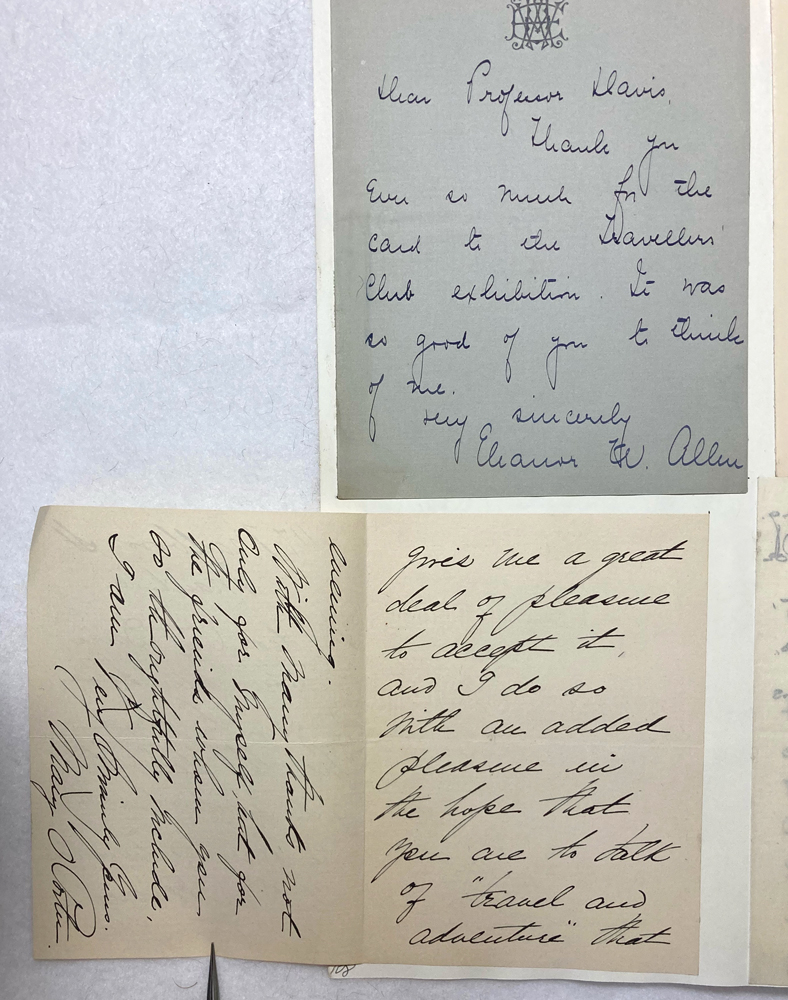 Dear Professor Davis,
Thank you
Ever so much for the
card to the Travellers'
Club exhibition. It was
so good of you to think
of me.
Very sincerely
Eleanor W. Allen
gives me a great
deal of pleasure
to accept it,
and I do so
with an added
pleasure in
the hope that
you are to talk
of "travel and
adventure" that
evening.
With many thanks not
only for myself, but for
the friends whom you
so thoughtfully include,
I am
Very Sincerely Yours.
Mary
108